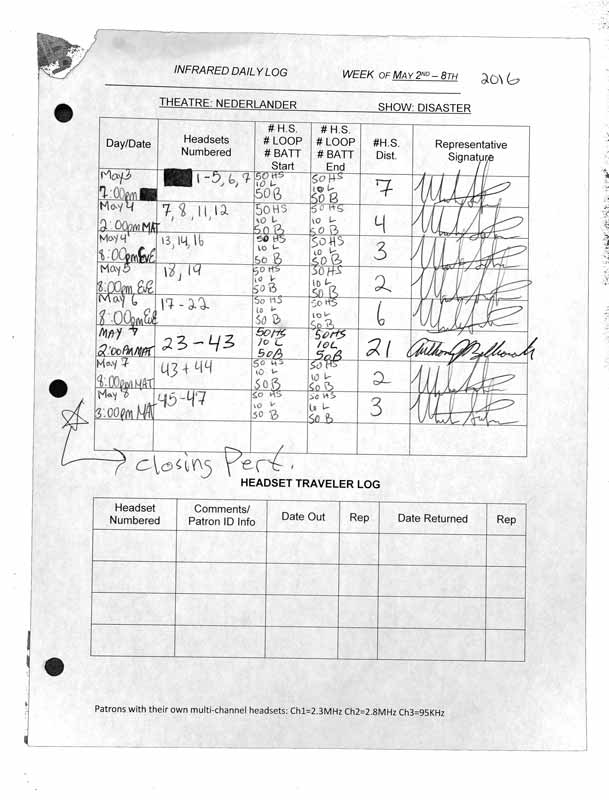 INFRARED DAILY LOG WEEK OF MAY 2ND – 8TH 2016
THEATRE: NEDERLANDER SHOW: DISASTER
Day/Date Headsets Numbered # H.S. # LOOP # BATT Start # H.S. # LOOP # BATT End #H.S. Dist. Representative Signature
May 3 7:00pm 1-5, 6, 7 50 HS 10 L 50 B 50 HS 10 L 50 B 7
May 4 2:00pm MAT 7, 8, 11, 12 50 HS 10 L 50 B 50 HS 10 L 50 B 4
May 4 8:00pm EVE 13, 14, 16 50 HS 10 L 50 B 50 HS 10 L 50 B 3
May 5 8:00pm EVE 18, 19 50 HS 10 L 50 B 50 HS 10 L 50 B 2
May 6 8:00pm EVE 17-22 50 HS 10 L 50 B 50 HS 10 L 50 B 6
MAY 7 2:00PM MAT 23-43 50 HS 10 L 50 B 50 HS 10 L 50 B 21 Anthony
May 7 8:00pm MAT 43 + 44 50 HS 10 L 50 B 50 HS 10 L 50 B 2
May 8 3:00pm MAT 45-47 50 HS 10 L 50 B 50 HS 10 L 50 B 3
closing Perf.
HEADSET TRAVELER LOG
Headset Numbered Comments/ Patron ID Info Date Out Rep Date Returned Rep
Patrons with their own multi-channel headsets: Ch1=2.3MHz Ch2=2.8MHz Ch3=95KHz